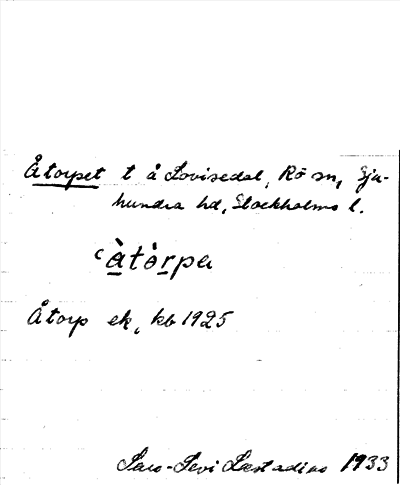 Åtorpet t å Lovisedal, Rö sn, Sju-
hundra hd, Stockholms l.
‘àtòrpa
Åtorp ek, kb 1925
Lars-Levi Læstadius 1933